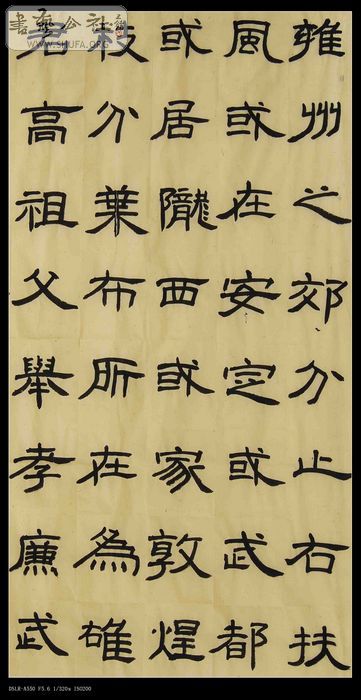 雍州之郊分止右扶
風或在安定或武都
或居隴西或家敦煌
枝分葉布所在為雄
君高祖父舉孝廉武
書藝公社
WWW.SHUFA.ORG
DSLR-A550 F5.6 1/320s ISO200